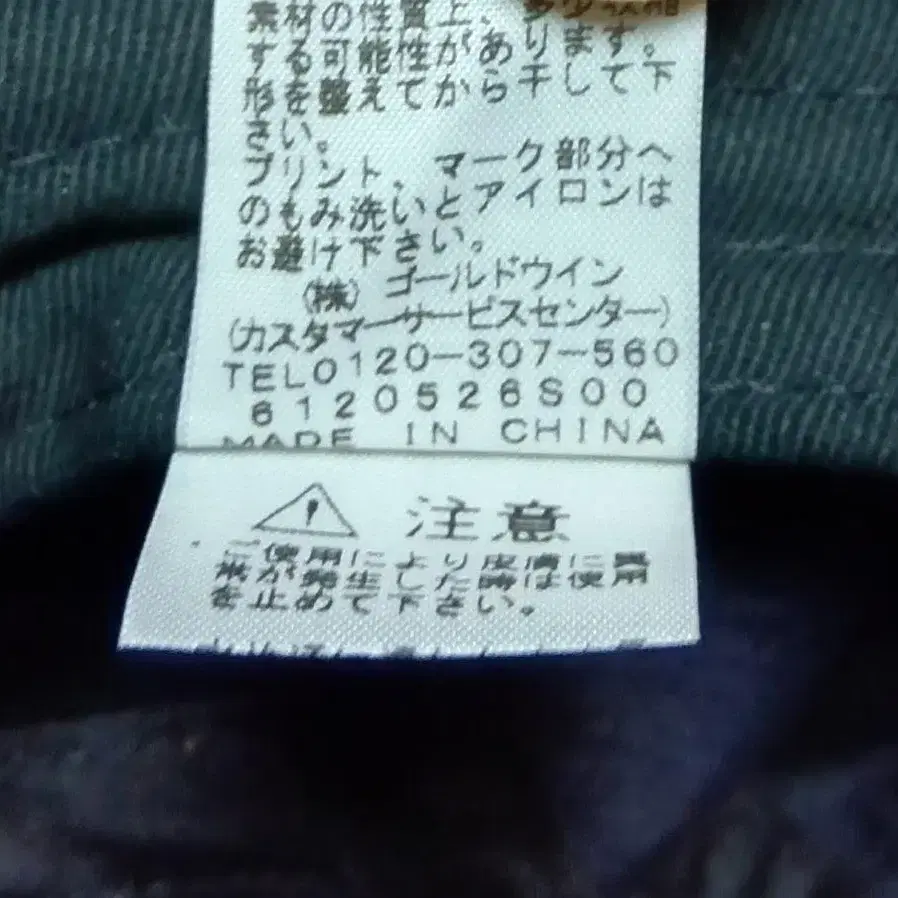 素材の性質上、多少収縮
する可能性があります。
形を整えてから干して下
さい。
プリント、マーク部分へ
のもみ洗いとアイロンは
お避け下さい。
(株)ゴールドウイン
(カスタマーサービスセンター)
TEL0120-307-560
6120526S00
MADE IN CHINA
注意
ご使用により皮膚に異
常が生じた時は使用
を止めて下さい。